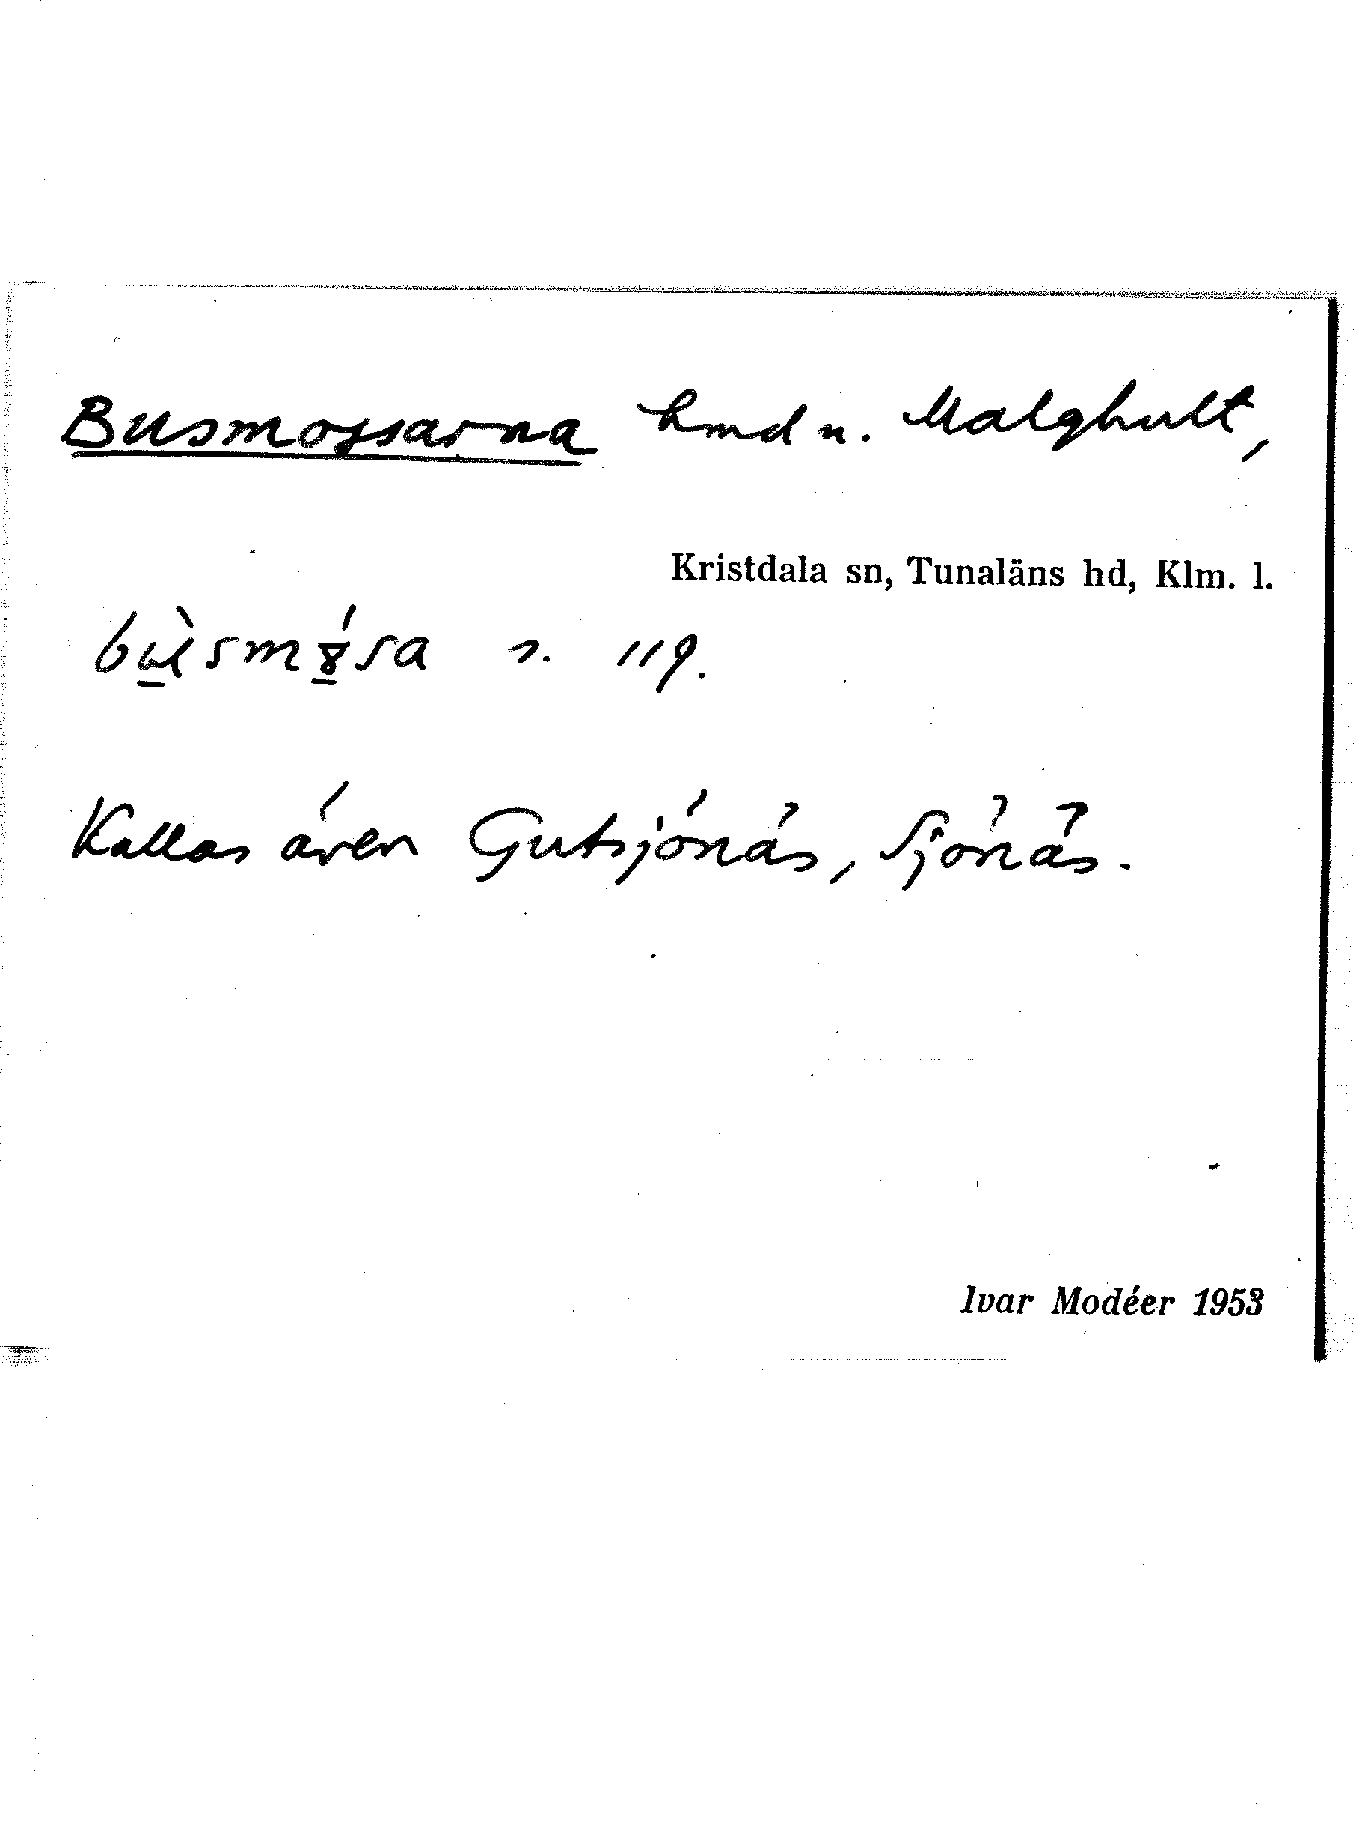 Busmossarna hmd u. Malghult,
Kristdala sn, Tunaläns hd, Klm. l.
s. 119.
Kallas även Gutsjönäs, Sjönäs.
Ivar Modéer 1953